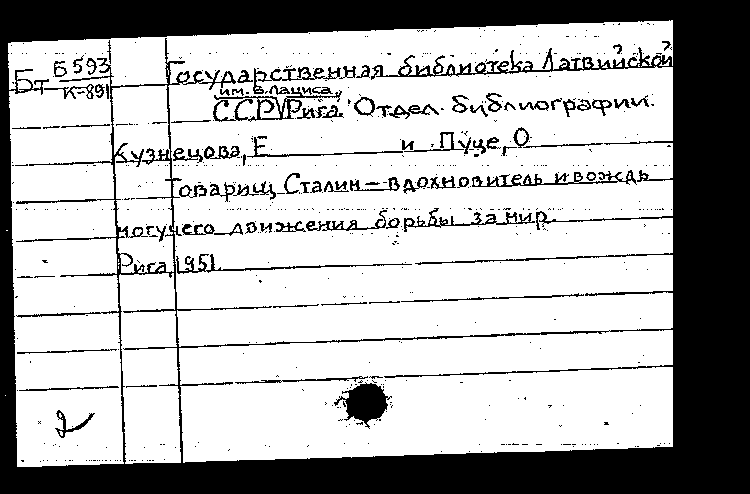 Бт Б593
К-891
Государственная библиотека Латвийской
им. В. Лациса,
ССР Рига. Отдел библиографии.
Кузнецова, Е и Пуце, О
Товарищ Сталин — вдохновитель и вождь
могучего движения борьбы за мир.
Рига, 1951.
2